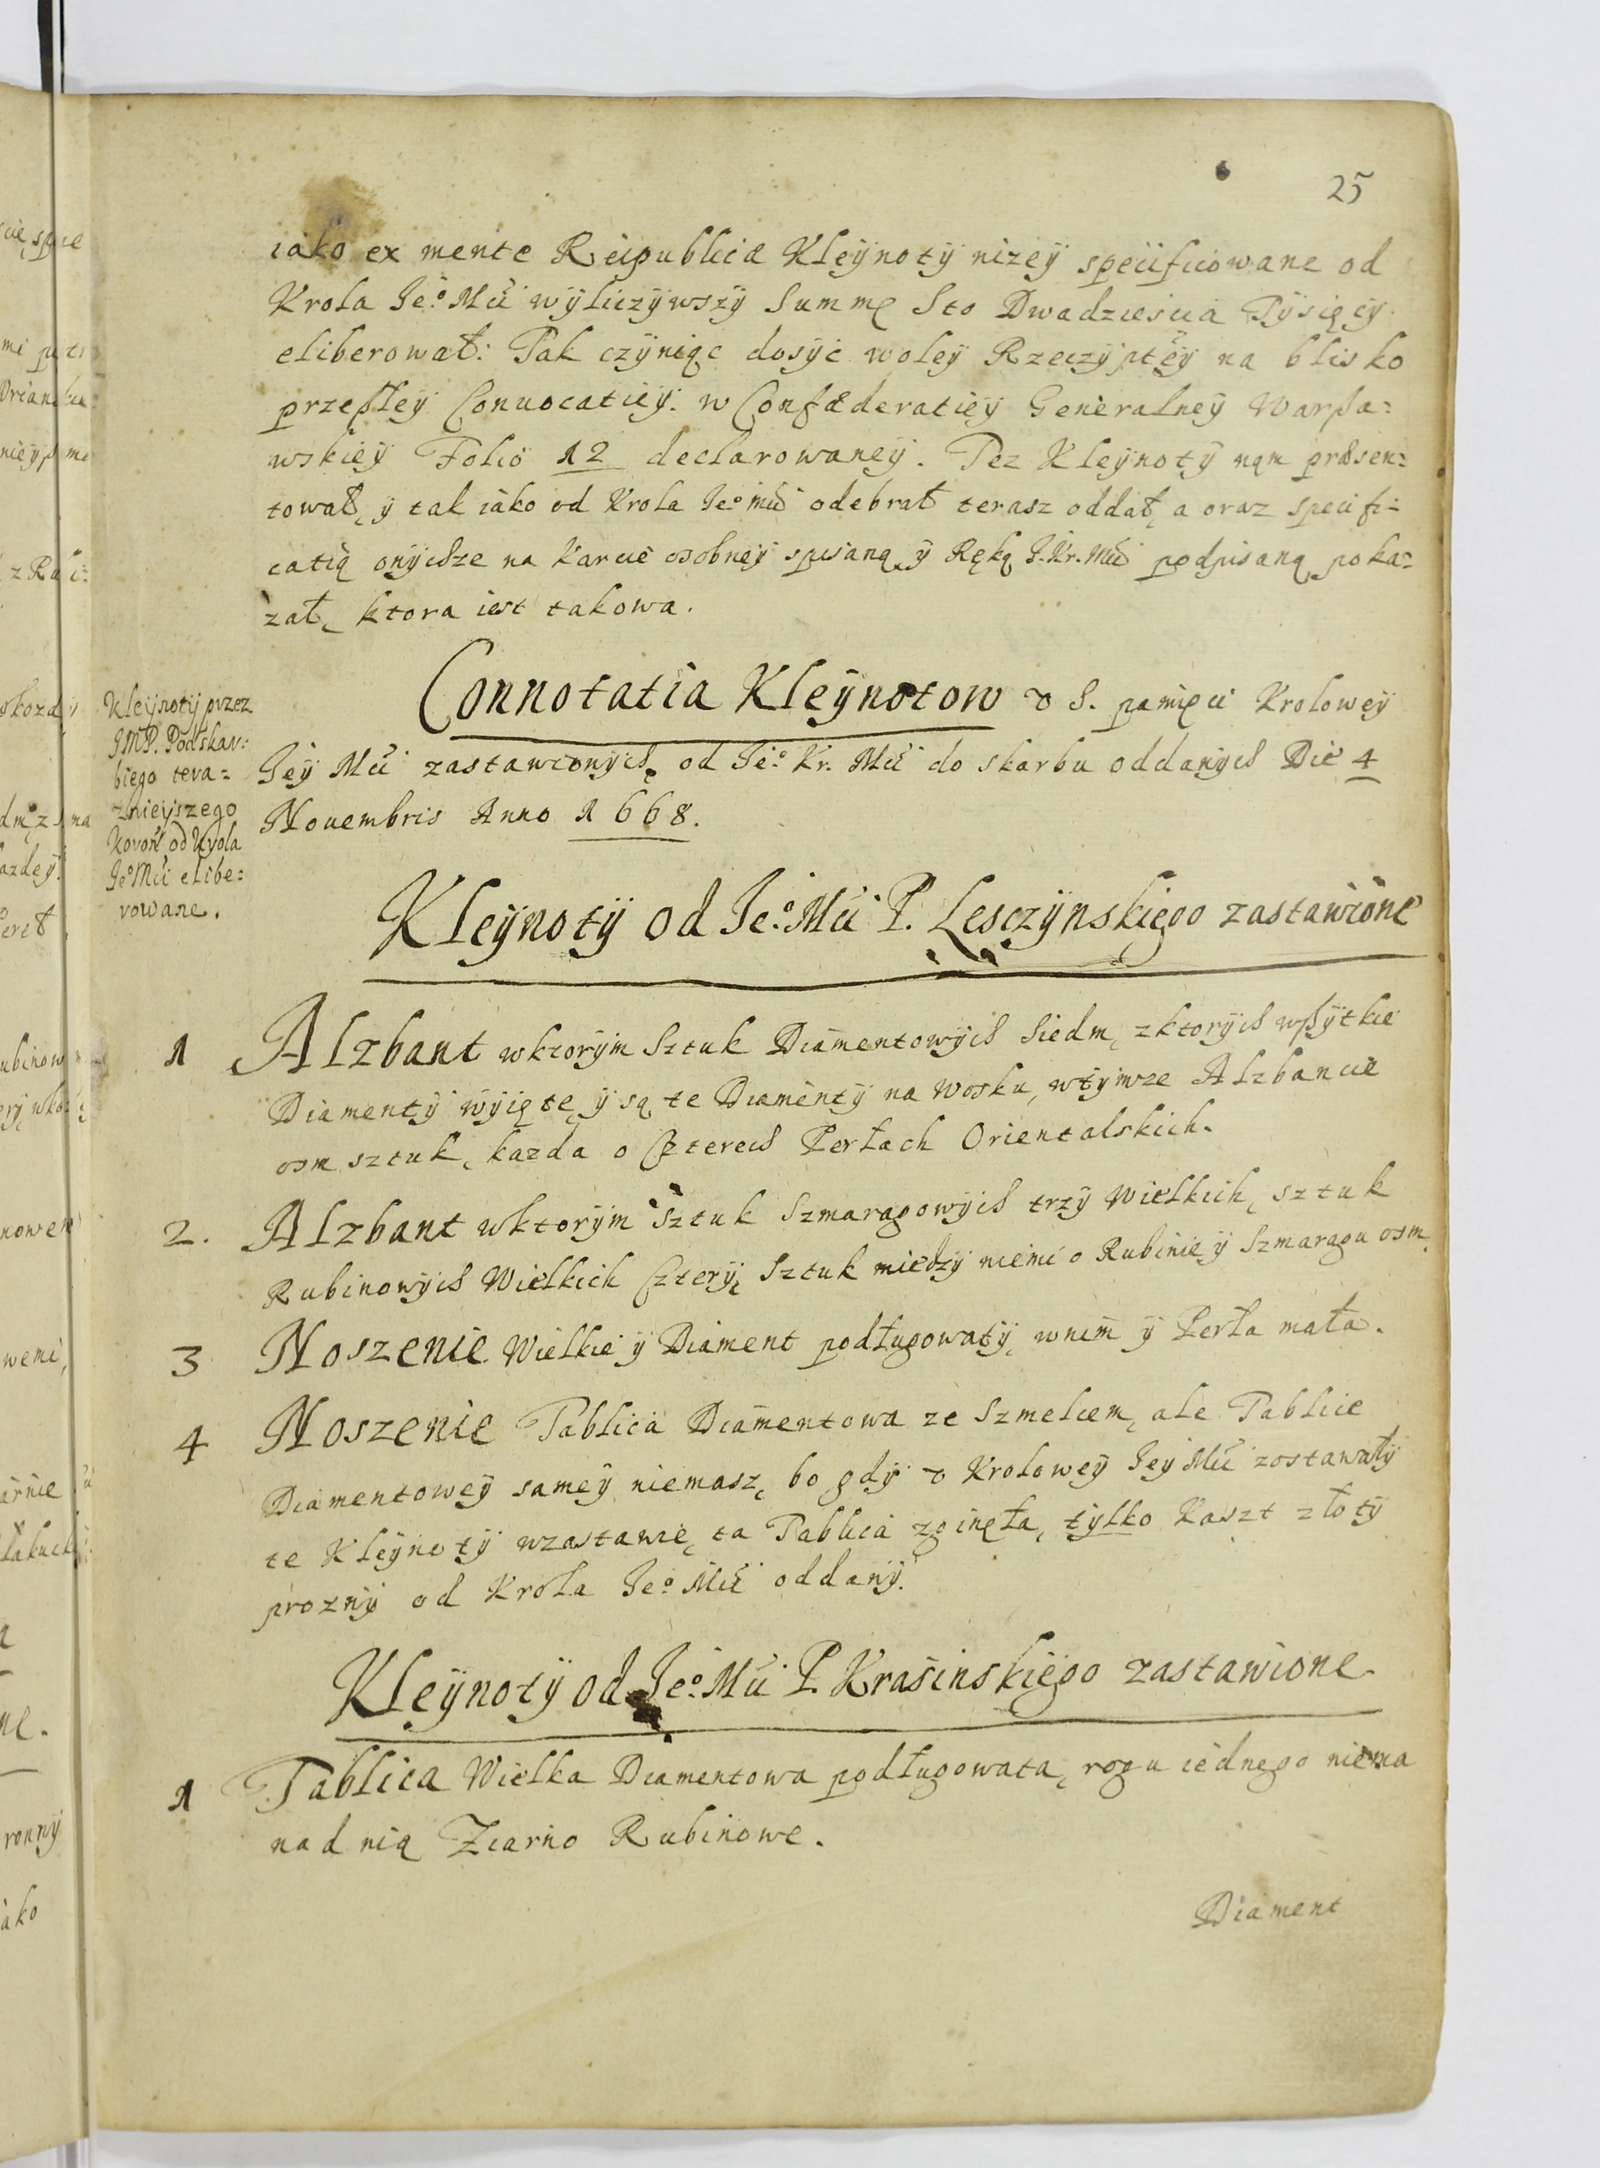 25
iako ex mente Reipublicæ Kleÿnotÿ nizeÿ specificowane od
Krola Je.º Mći wÿliczÿwszÿ Summę Sto Dwadziescia Tÿsięcÿ
eliberował: Tak czÿniąc dosÿć woleÿ Rzeczÿptey na blisko
przeszłeÿ Conuocatieÿ. w Confæderatieÿ Generalneÿ Warsza=
wskieÿ Folio 12 declarowaneÿ. Tez Kleÿnotÿ nąm præsen=
tował, ÿ tak iáko od Krola Je.º Mći odebrał terasz oddał, a oraz specifi=
catią onÿchze na Karcie osobneÿ spisaną, ÿ Ręką J. Kr. Mći podpisaną poka=
zał, ktora iest takowa.
Connotatia Kleÿnotow v S. pamięci Kroloweÿ
Jeÿ Mći zastawionÿch, od Je.º Kr. Mći do skarbu oddanÿch Die 4
Nouembris Anno 1668.
Kleÿnotÿ przez
JMP. Podskar=
biego tera=
znieÿszego
Koroń od Krola
Je.º Mći elibe=
rowane.
Kleÿnotÿ od Je.º Mći P. Lesczÿnskiego zastawione
1 Alzbant wktorÿm Sztuk Diamentowÿch Siedm, zktorÿch wszÿtkie
Diamentÿ wÿięte, ÿ są te Diamentÿ na wosku, wtÿmze Alzbancie
osm sztuk, kazda o Czterech Perłach Orientalskich.
2. Alzbant wktorÿm Sztuk Szmaragowÿch trzÿ Wielkich, sztuk
Rubinowÿch Wielkich Czterÿ, Sztuk miedzÿ niemi o Rubinie ÿ Szmaragu osm.
3 Noszenie Wielkie ÿ Diament podługowatÿ, wnim ÿ Perła mała.
4 Noszenie Tablica Diamentowa ze Szmelcem, ale Tablice
Diamentoweÿ sameÿ niemasz, bo gdÿ v Kroloweÿ Jeÿ Mći zostawałÿ
te Kleÿnotÿ wzastawie, ta Tablica zginęła, tÿlko Kaszt złotÿ
proznÿ od Krola Je.º Mći oddanÿ.
Kleÿnotÿ od Je.º Mći P. Krasinskiego zastawione.
1 Tablica Wielka Diamentowa podługowata, rogu iednego niema
nad nią Ziarno Rubinowe.
Diament